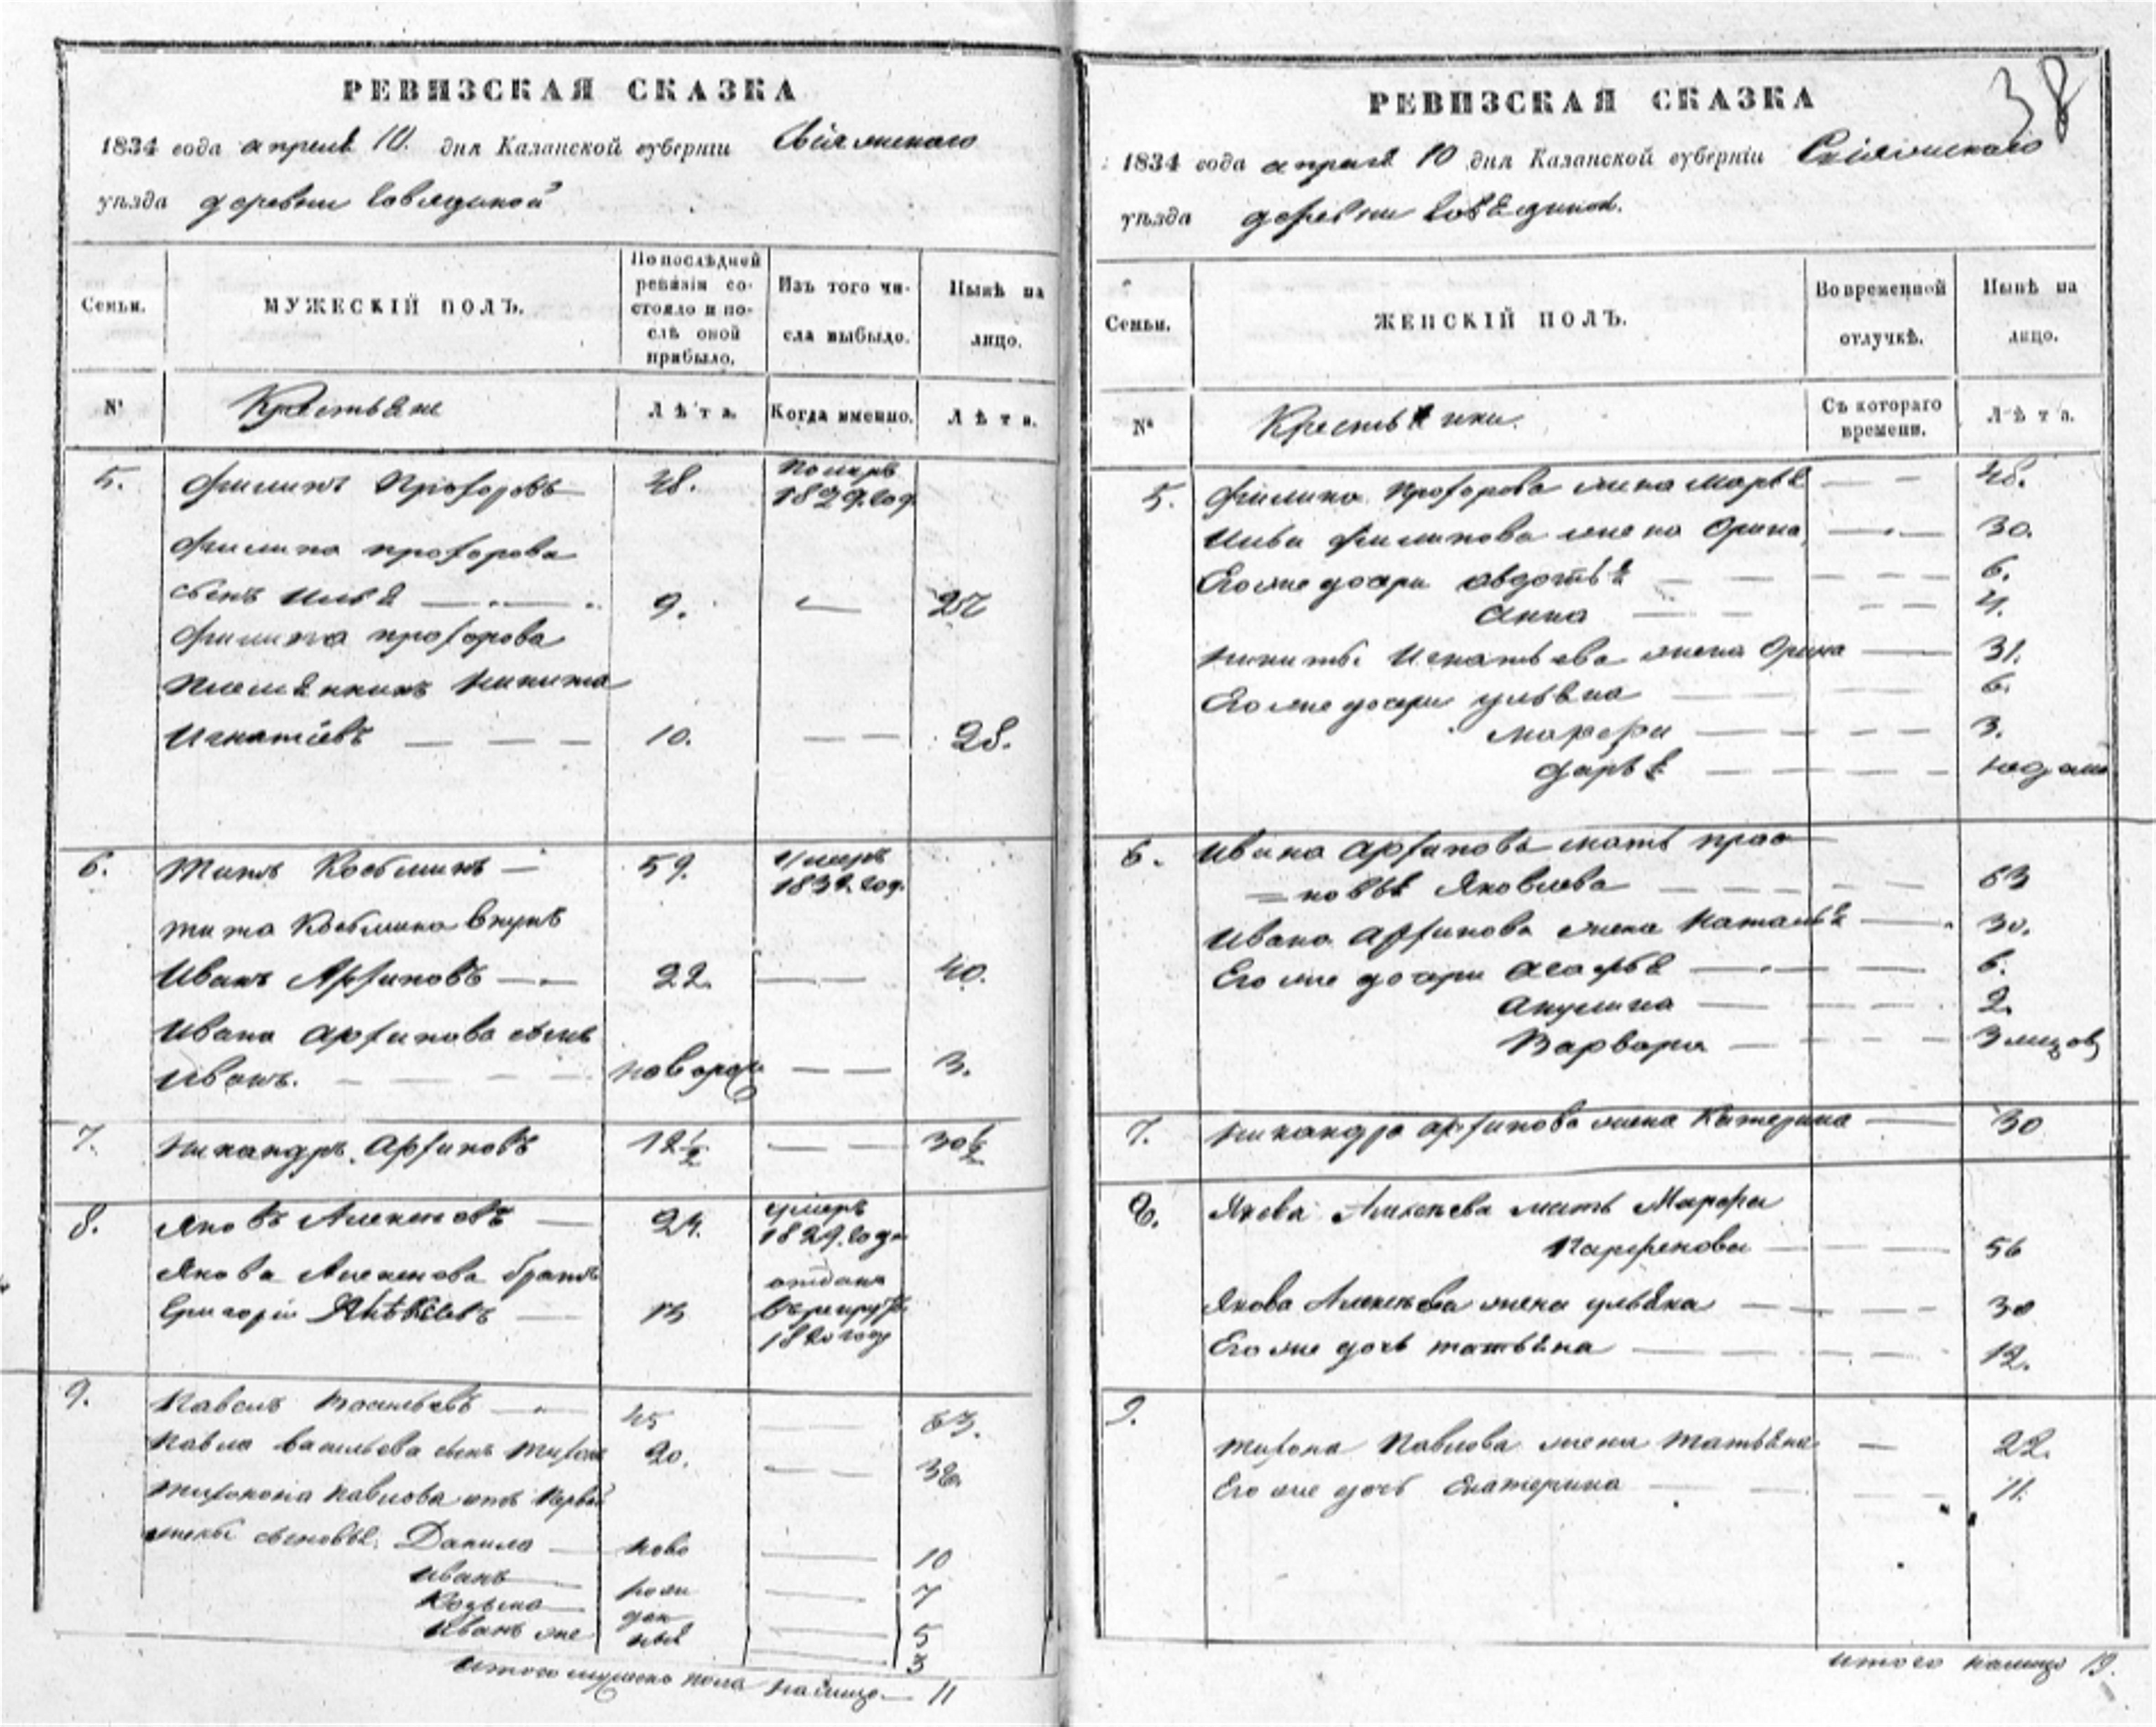 РЕВИЗСКАЯ СКАЗКА
1834 года апреля 10. дня Казанской губернiи Свiяжскаго
уѣзда деревни
Семьи.
МУЖЕСКIЙ ПОЛЪ.
По послѣдней ревизiи состояло и послѣ оной прибыло.
Изъ того числа выбыло.
Нынѣ на лицо.
№
Крестьяне
Лѣта.
Когда именно.
Лѣта.
5. Филипъ Прохоровъ 48. Померъ
1829. год
Филипа прохорова
сынъ Илья 9. 27
Филипа прохорова
Племянникъ Никита
Игнатiевъ 10. 28.
6. Титъ Козьминъ 59. Умеръ
год.
Тита Козьмина Внукъ
Иванъ Архиповъ 22. 40.
Ивана Архипова сынъ
Иванъ. новорож 3.
7. Никандръ Архиповъ 12½ 30½
8. Яковъ Алексеевъ 24. умеръ
1829. года
Якова Алексеева братъ отданъ
Григорiй 13 въ рекруты
1820 году
9. Павелъ Васильевъ 45 63.
Павла Васильева сынъ 20. 38.
Павлова отъ первой
жены сыновья: Данила ново 10
Иванъ рож 7
Козьма ден 5
Иванъ же ные 3
Итого мужеска пола налицо 11
РЕВИЗСКАЯ СКАЗКА
38
1834 года апреля 10 дня Казанской губернiи Свiяжскаго
уѣзда деревни
Семьи.
ЖЕНСКIЙ ПОЛЪ.
Во временной отлучкѣ.
Нынѣ на лицо.
№
Крестьянки.
Съ котораго времени.
Лѣта.
5. Филипа Прохорова жена Марья 48.
Ильи Филипова жена Орина 30.
Его же дочери авдотья 6.
Анна 4.
Никиты Игнатьева жена Орина 31.
Его же дочери ульяна 6.
марфа 3.
дарья
6. Ивана Архипова мать прас
=ковья Яковлева 63
Ивана Архипова жена Наталья 30.
Его же дочери Агафья 6.
Акулина 2.
Варвара 3 мѣсяцов
7. Никандра архипова жена Катерина 30
8. Якова Алексеева мать Марфа
Парфенова 56
Якова Алексеева жена ульяна 30
Его же дочь татьяна 12.
9.
Павлова жена татьяна 22.
Его же дочь Екатерина 11.
итого налицо 19.